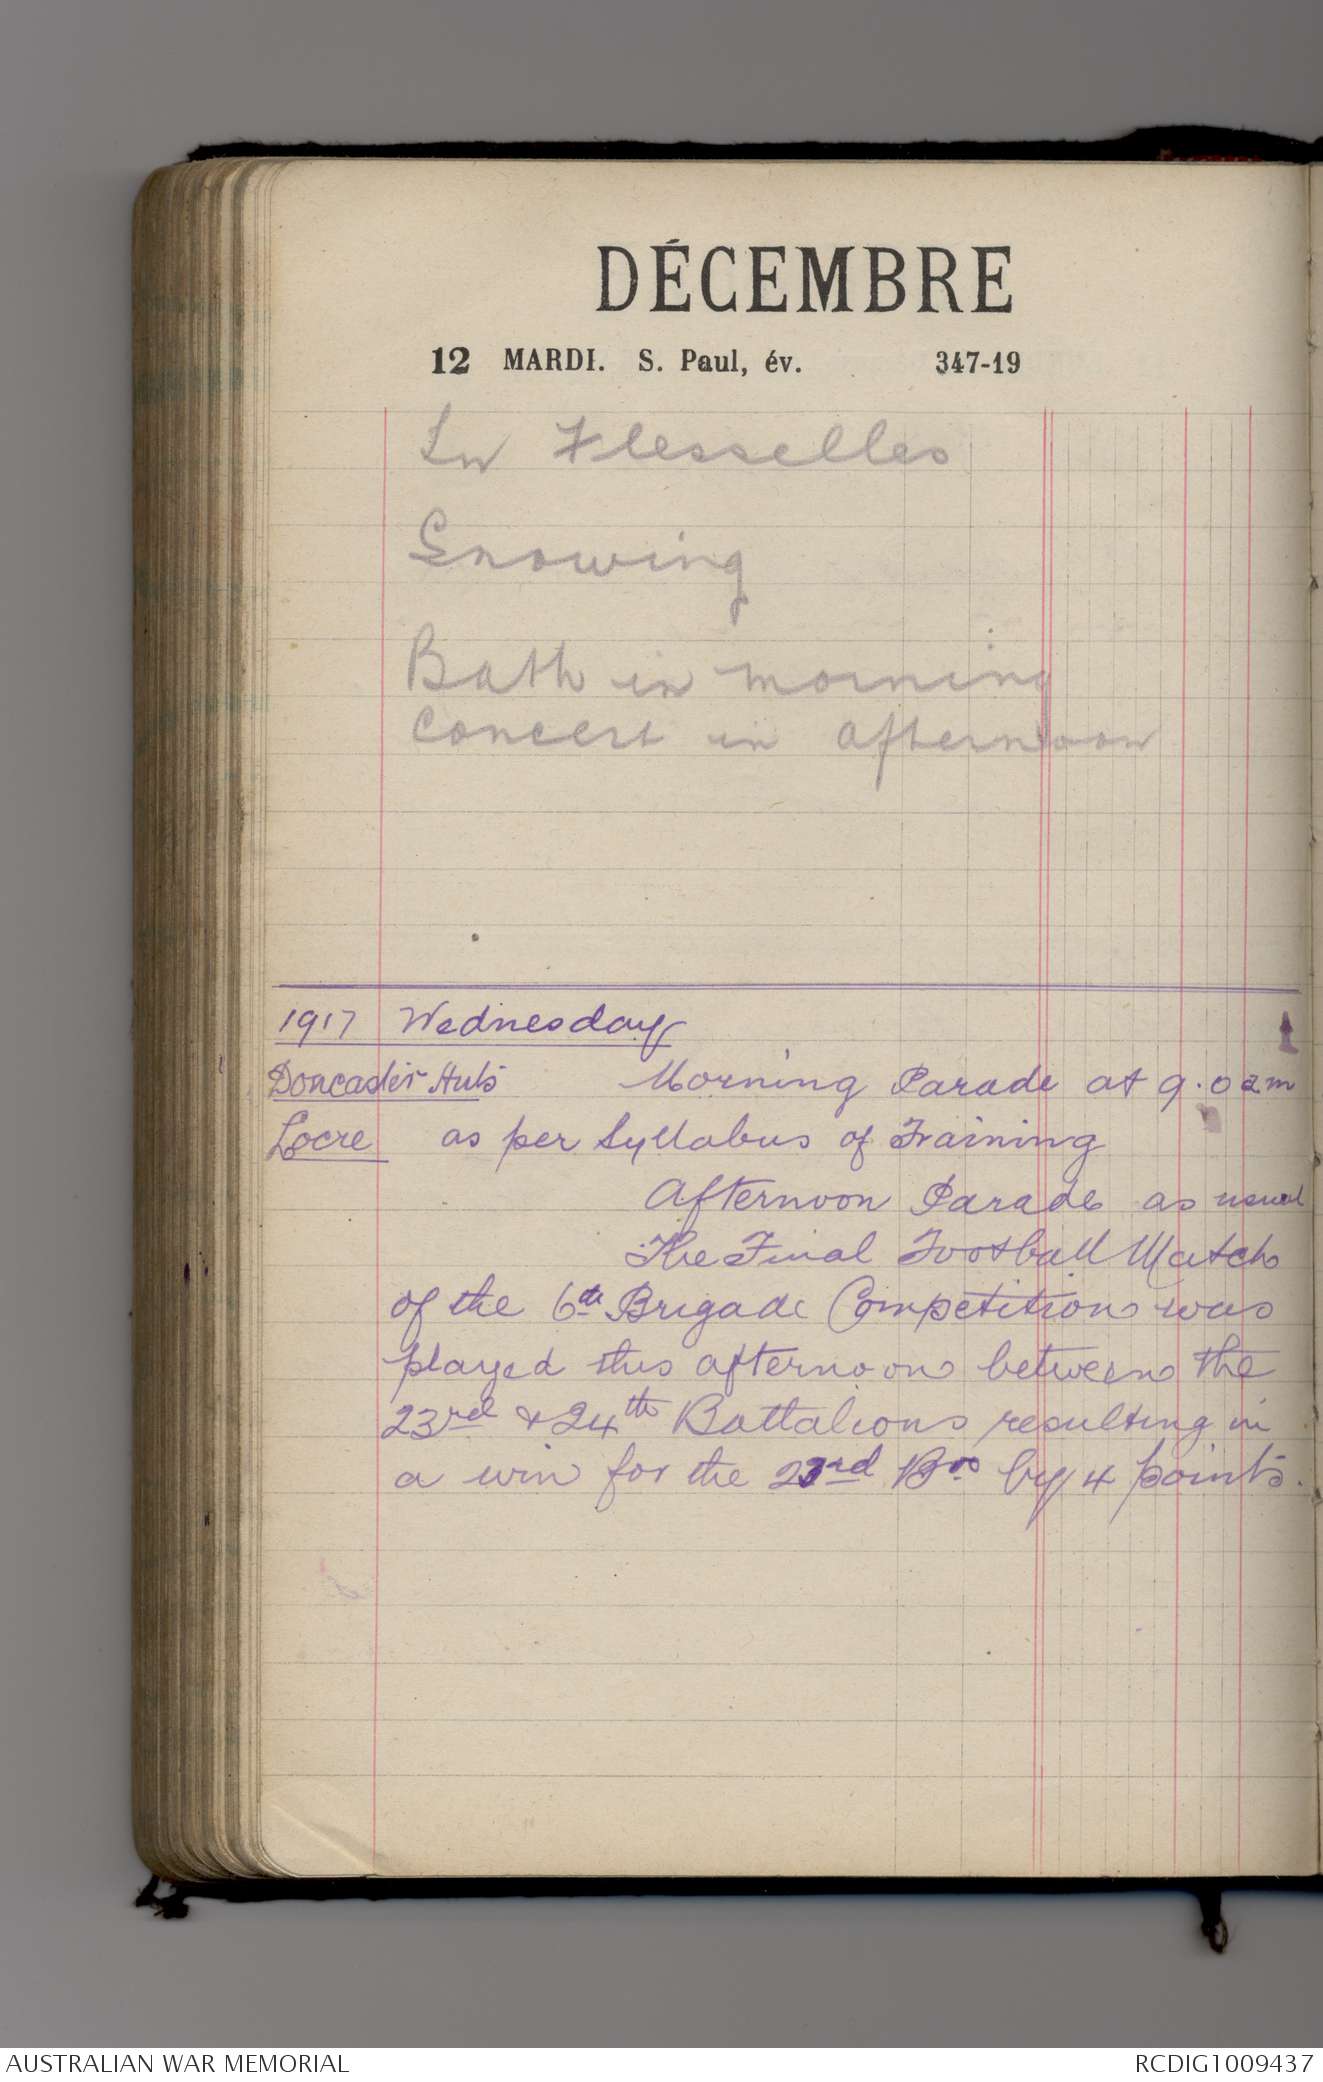 DÉCEMBRE
12 MARDI. S. Paul, év. 347-19
In Flesselles
Snowing
Bath in morning
Concert in afternoon
1917 Wednesday
Doncaster Huts Morning Parade at 9.0 am
Locre as per Syllabus of Training
Afternoon Parade as usual
The Final Football Match
of the 6th Brigade Competition was
played this afternoon between the
23rd & 24th Battalions resulting in
a win for the 23rd Bn by 4 points.
AUSTRALIAN WAR MEMORIAL
RCDIG1009437